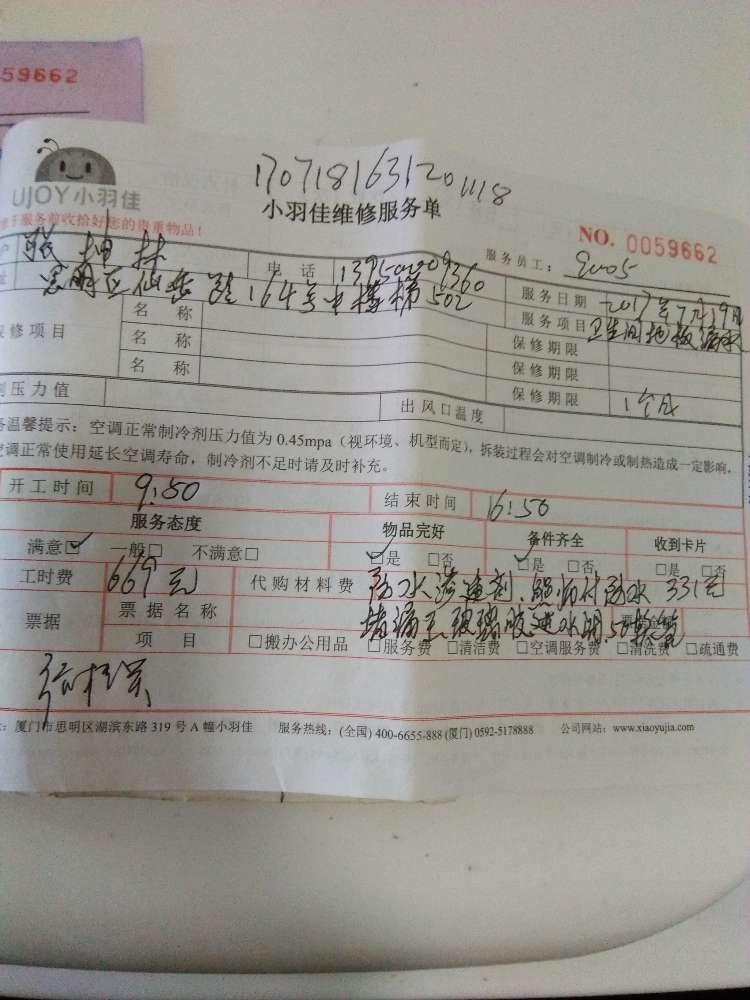 59662
UJOY小羽佳
1707181631201118
小羽佳维修服务单
服务前收拾好您的贵重物品！
NO. 0059662
服务员工：9005
张坤林
电 话 13950009360
服务日期 2017年7月19日
思明区仙岳路164号中楼梯502
服务项目 卫生间地板漏水
修项目 名 称 保修期限
名 称 保修期限
名 称 保修期限 1个月
压力值 出风口温度
温馨提示：空调正常制冷剂压力值为 0.45mpa（视环境、机型而定），拆装过程会对空调制冷或制热造成一定影响，
调正常使用延长空调寿命，制冷剂不足时请及时补充。
开工时间 9:50 结束时间 16:50
服务态度 物品完好 备件齐全 收到卡片
满意☑ 一般□ 不满意□ ☑是 □否 ☑是 □否 □是 □否
工时费 669元 代购材料费 防水渗透剂、 331元
票据 票据名称 堵漏王 玻璃胶 进水
项 目 □搬办公用品 □服务费 □清洁费 □空调服务费 □清洗费 □疏通费
厦门市思明区湖滨东路 319 号 A 幢小羽佳 服务热线：(全国) 400-6655-888 (厦门) 0592-5178888 公司网站：www.xiaoyujia.com